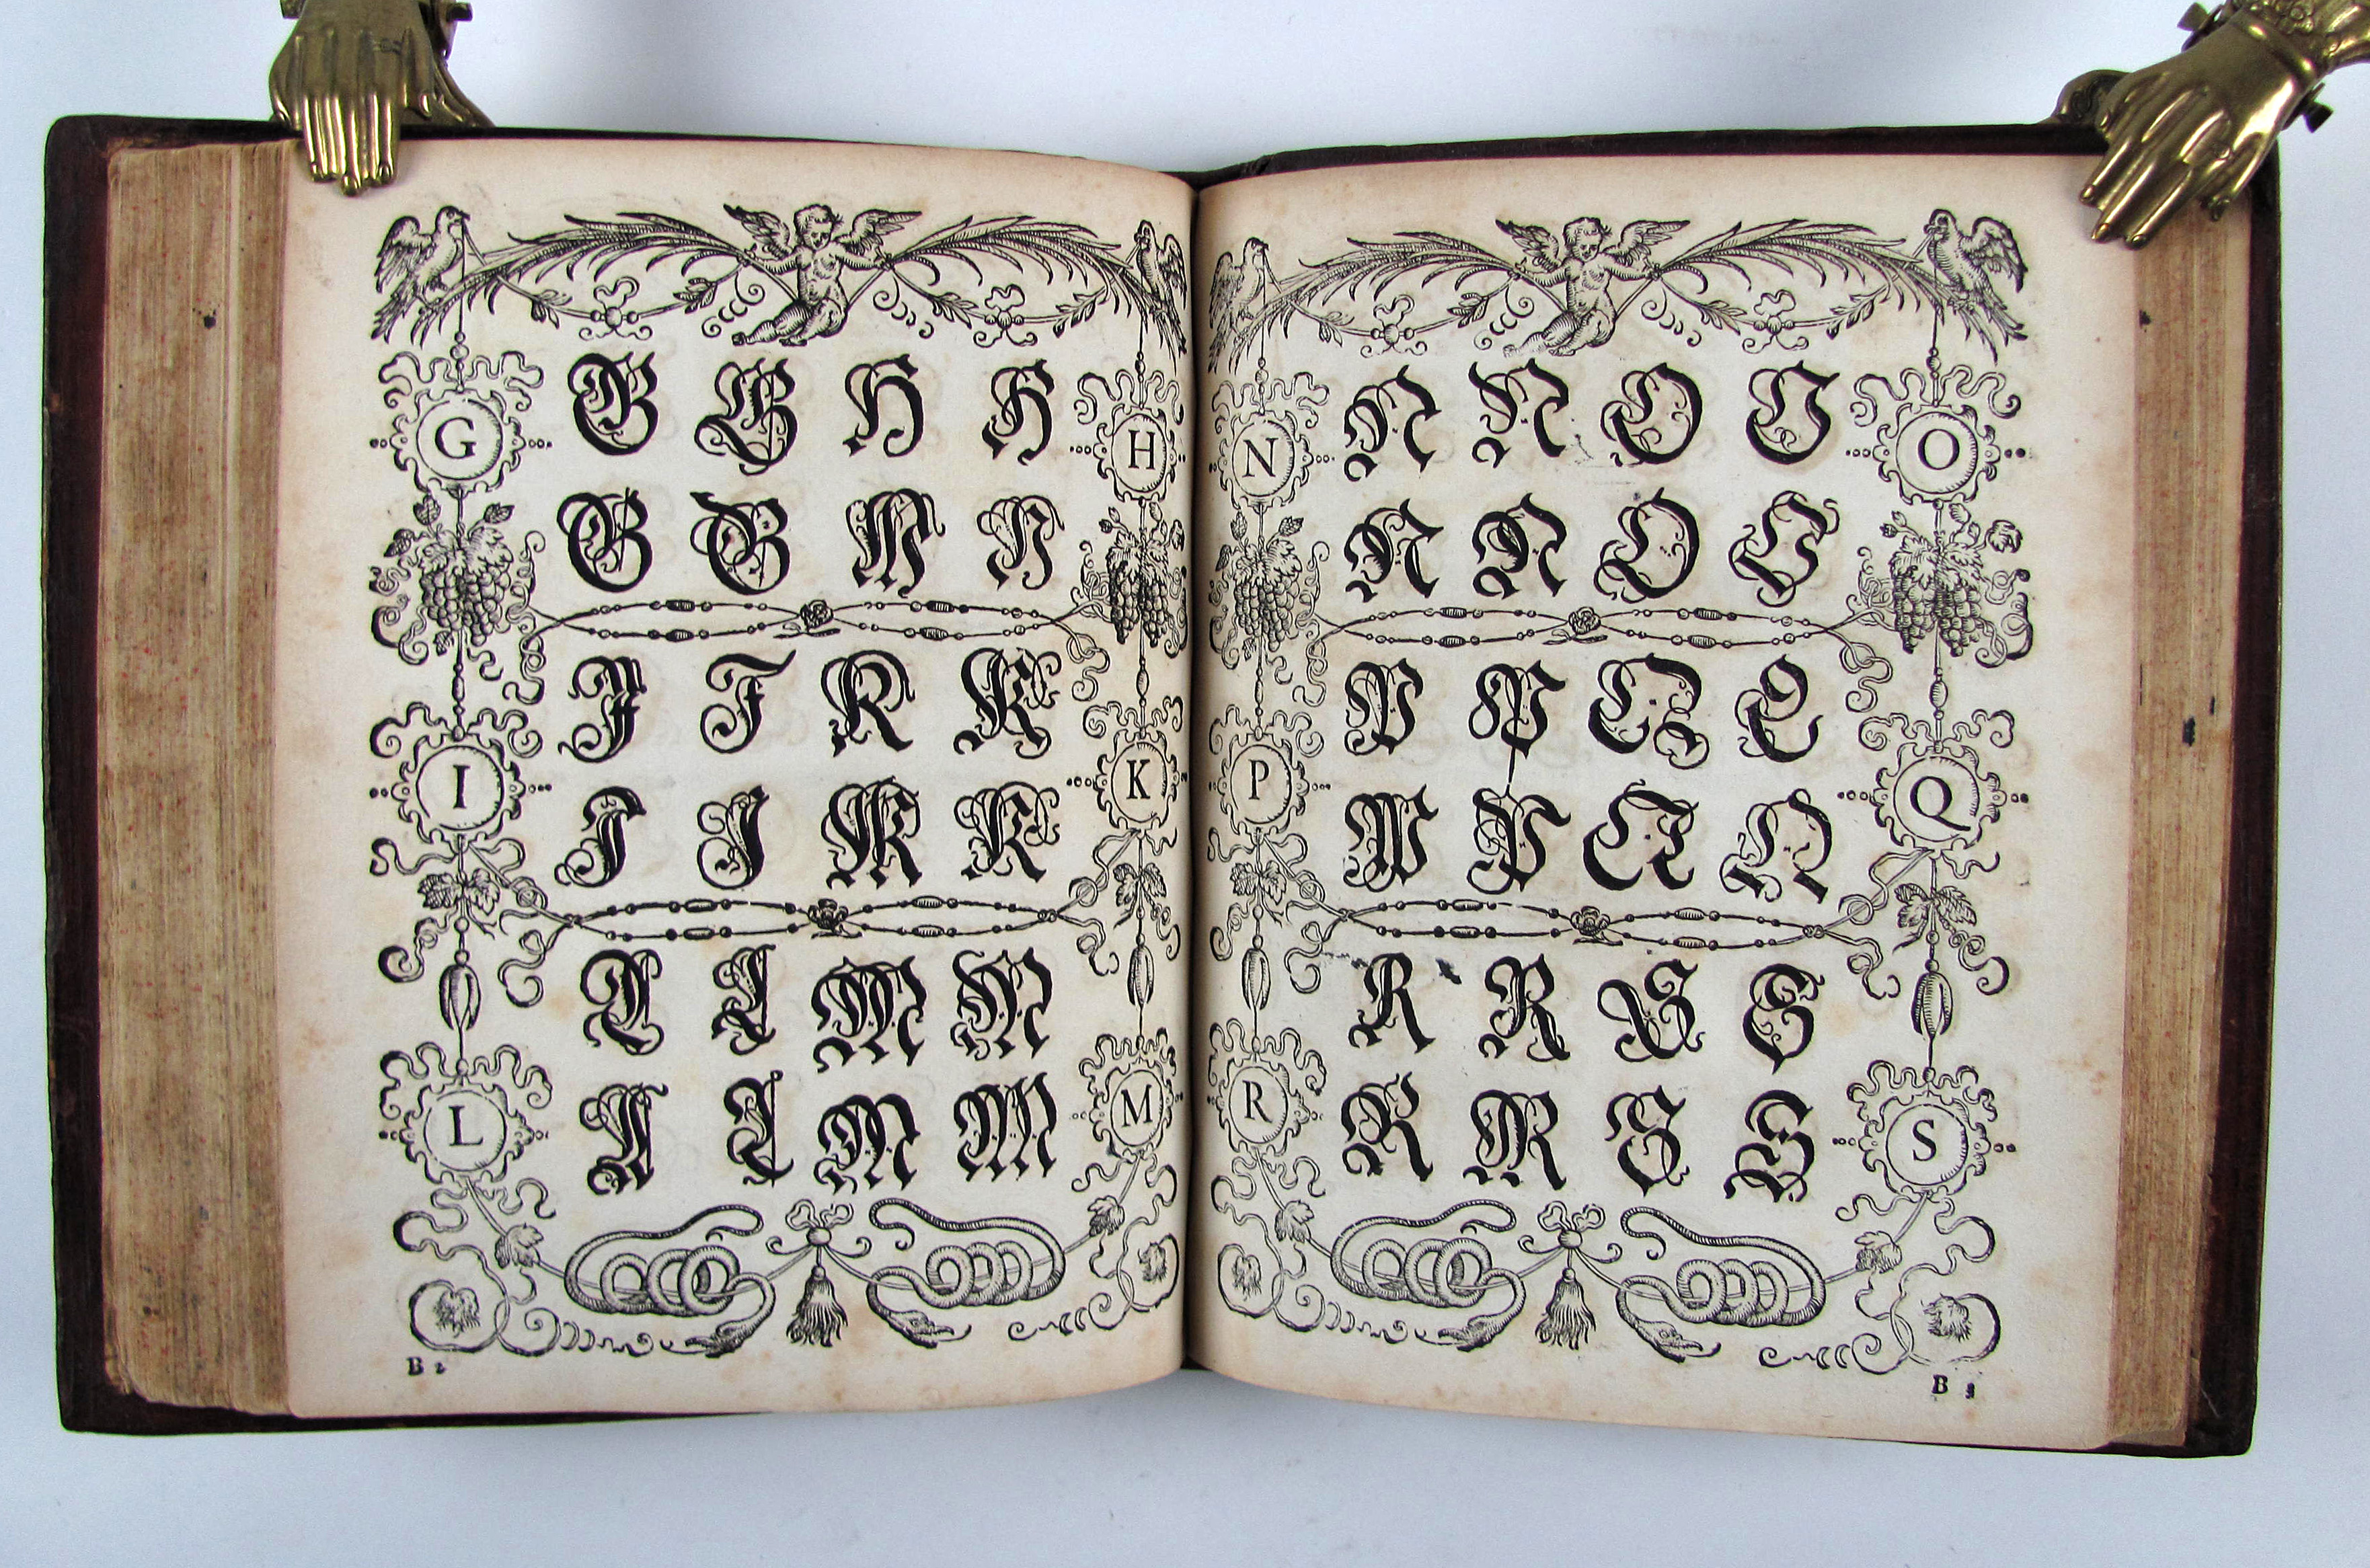 G G G H H H
G G H H
I I K K
I I I K K K
L L M M
L L L M M M
B 2
N N N O O O
N N O O
P P Q Q
P P P Q Q Q
R R S S
R R R S S S
B 3